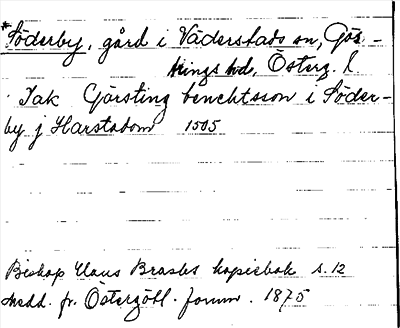 *Söderby, gård i Väderstads sn, Gös-
trings hd, Österg. l
Jak Görsting benchtsson i Söder-
by j Harstadom 1505
Biskop Hans Brasks kopiebok s. 12
Medd. fr. Östergötl. fornm. 1875